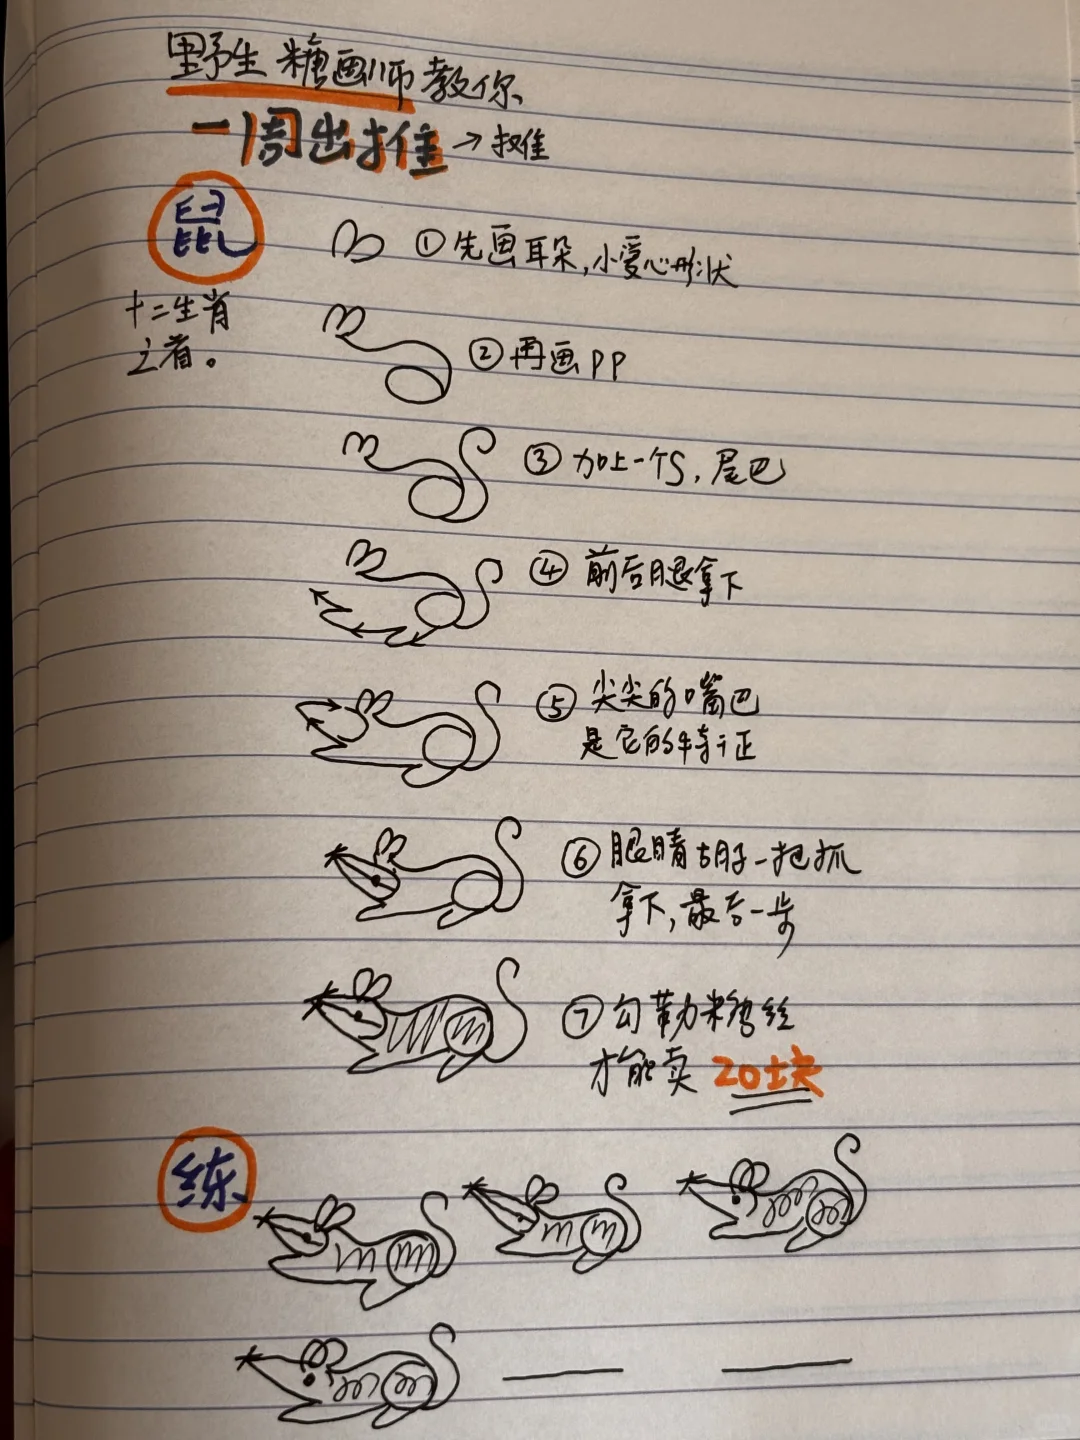 野生糖画师教你
一周出推→摊
鼠
十二生肖
之首。
①先画耳朵,小爱心形状
②再画PP
③加上一个S,尾巴
④前后腿拿下
⑤尖尖的嘴巴
是它的特征
⑥眼睛胡子一把抓
拿下,最后一步
⑦勾勒糖丝
才能卖 20块
练